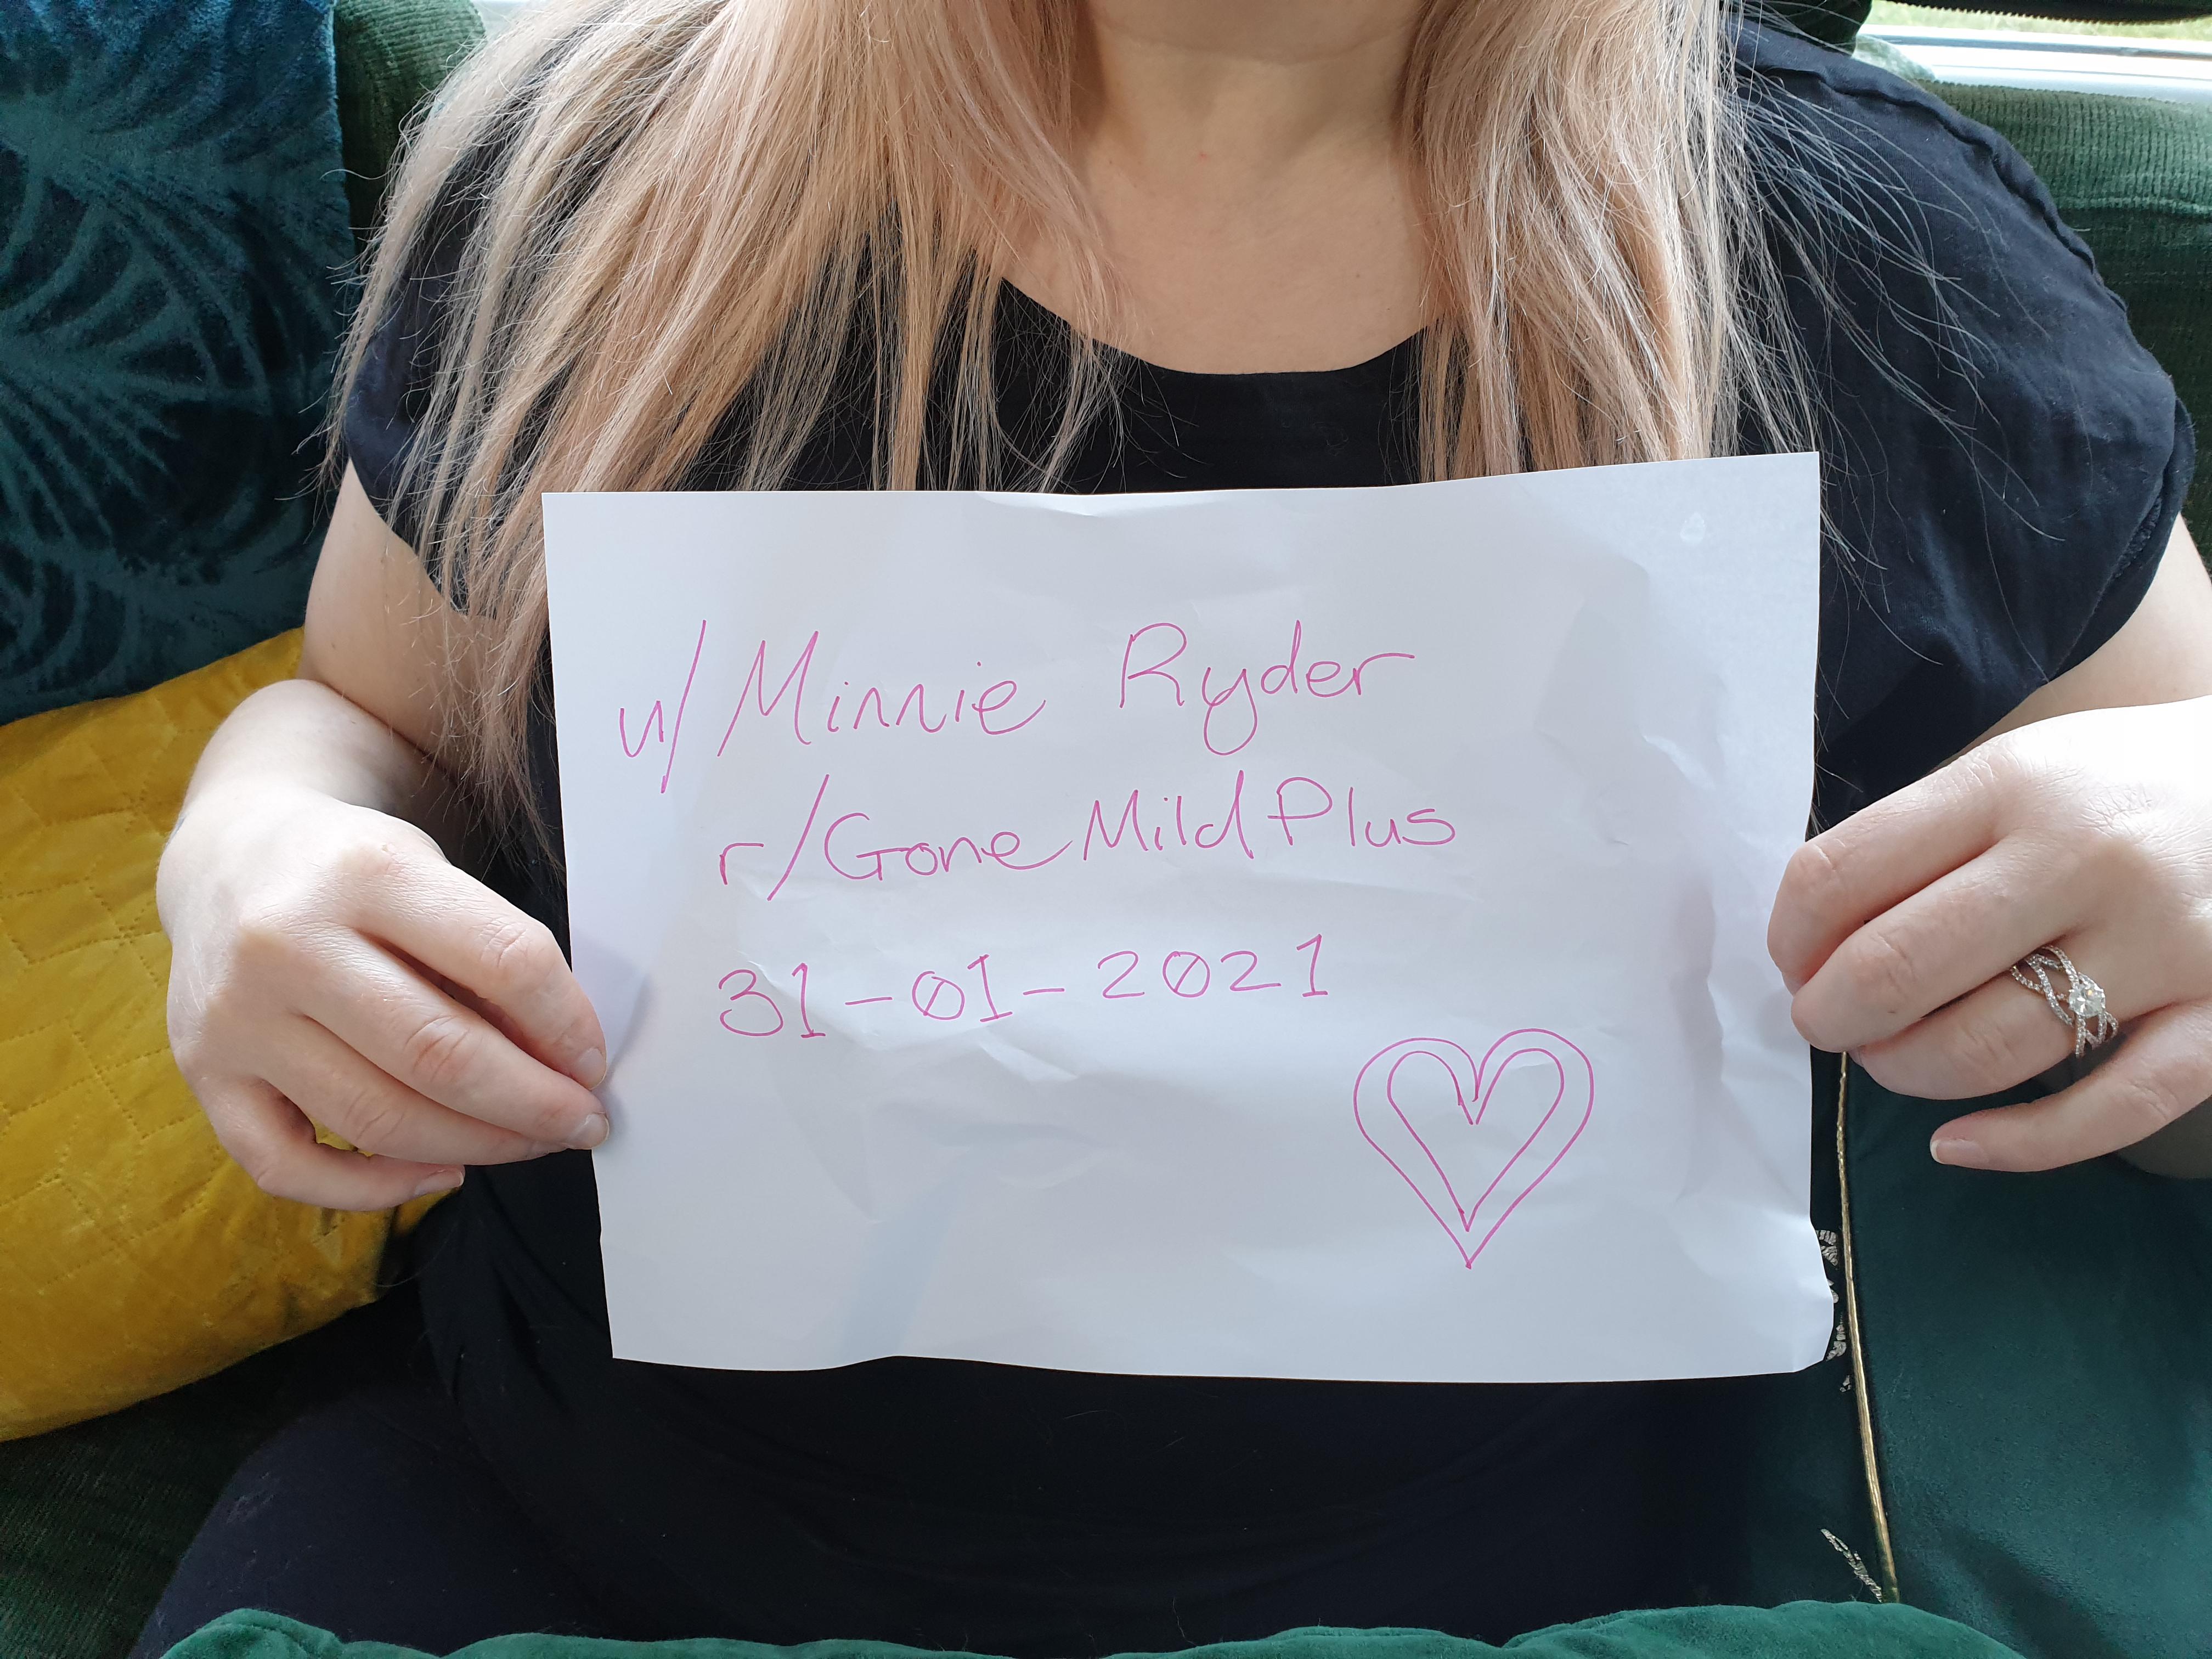 u/Minnie Ryder
r/GoneMildPlus
31-01-2021